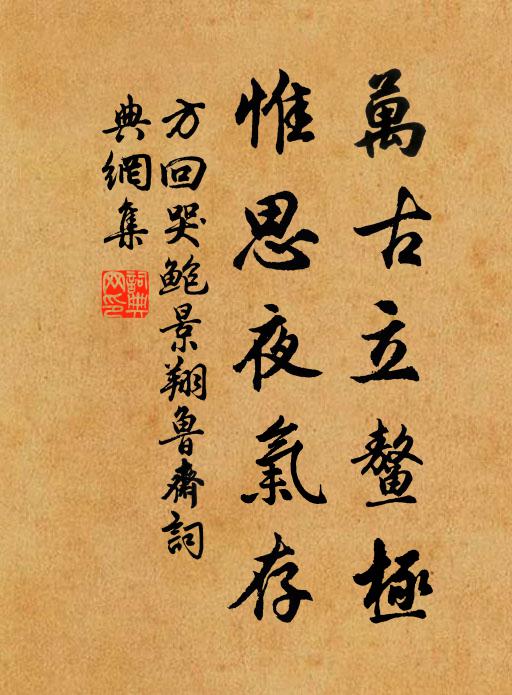 萬古立鰲極
惟思夜氣存
方回哭鲍景翔魯齋詞
典網集
詞典
网印